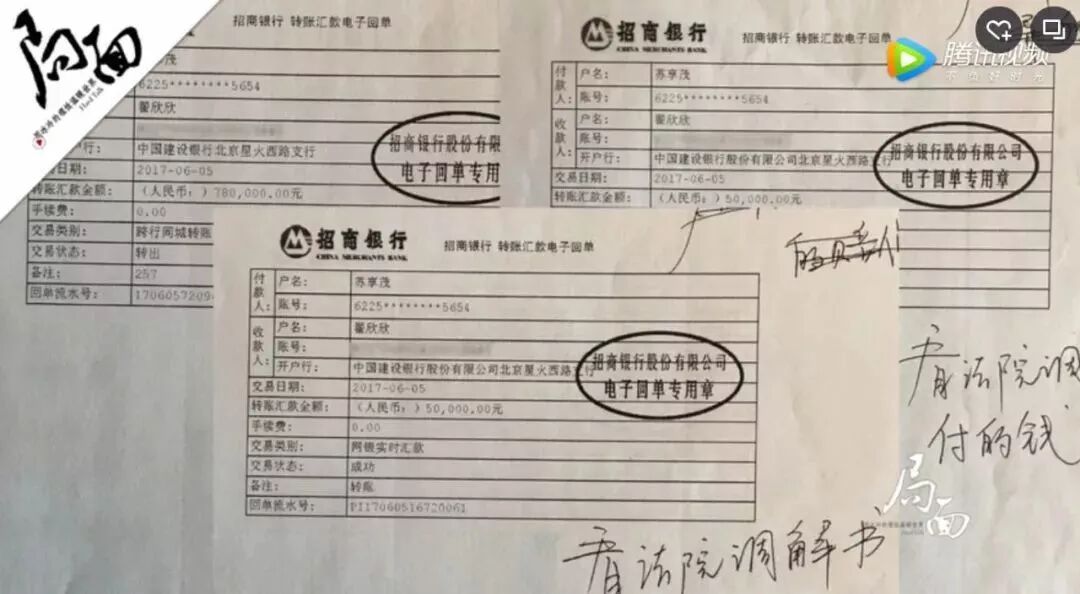 局面
Hard Talk
招商银行 转账汇款电子回单
茂
6225********5654
翟欣欣
户行: 中国建设银行北京星火西路支行
易日期: 2017-06-05
转账汇款金额: (人民币:)780,000.00元
手续费: 0.00
交易类别: 跨行同城转账
交易状态: 转出
备注: 257
回单流水号: 170605720
招商银行股份有限
电子回单专用
招商银行
CHINA MERCHANTS BANK
招商银行 转账汇款电子回单
腾讯视频
不负好时光
付款人: 户名: 苏享茂
账号: 6225********5654
收款人: 户名: 翟欣欣
账号:
开户行: 中国建设银行股份有限公司北京星火西路支行
交易日期: 2017-06-05
转账汇款金额: (人民币:)50,000.00元
招商银行股份有限公司
电子回单专用章
招商银行
CHINA MERCHANTS BANK
招商银行 转账汇款电子回单
付款人: 户名: 苏享茂
账号: 6225********5654
收款人: 户名: 翟欣欣
账号:
开户行: 中国建设银行股份有限公司北京星火西路支行
交易日期: 2017-06-05
转账汇款金额: (人民币:)50,000.00元
手续费: 0.00
交易类别: 网银实时汇款
交易状态: 成功
备注: 转账
回单流水号: PI17060516720061
招商银行股份有限公司
电子回单专用章
看法院调
付的钱
局面
看法院调解书